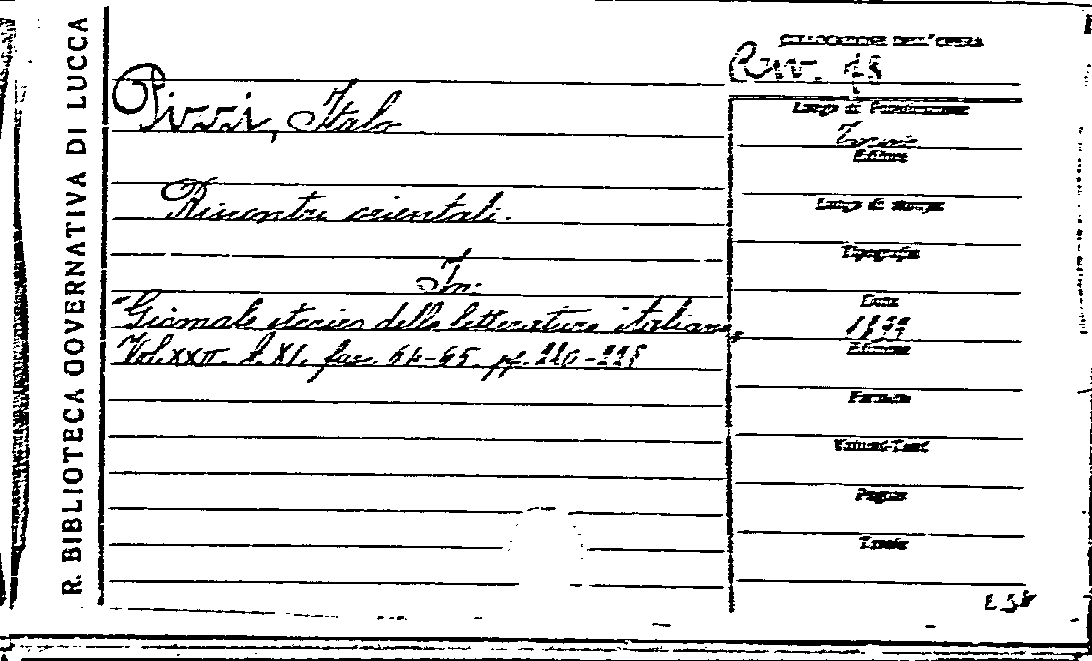 R. BIBLIOTECA GOVERNATIVA DI LUCCA
COLLOCAZIONE DELL'OPERA
Riv. 18
Pizzi, Italo
Riscontri orientali.
In:
"Giornale storico della letteratura italiana,
Vol. XXII. A. XI. fac. 64-65. pp.
Luogo di
Torino
Editore
Luogo di stampa
Tipografia
Data
Edizione
Formato
Volumi-Tomi
Pagine
Tavole